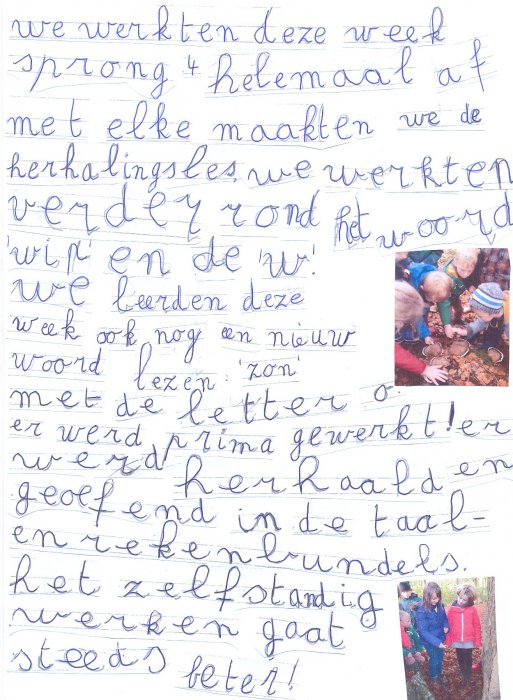 we werkten deze week
sprong 4 helemaal af
met elke maakten we de
herhalingsles. we werkten
verder rond het woord
'wip' en de 'w'.
we leerden deze
week ook nog een nieuw
woord lezen: 'zon'
met de letter o.
er werd prima gewerkt! er
werd herhaald en
geoefend in de taal-
en rekenbundels.
het zelfstandig
werken gaat
steeds beter!